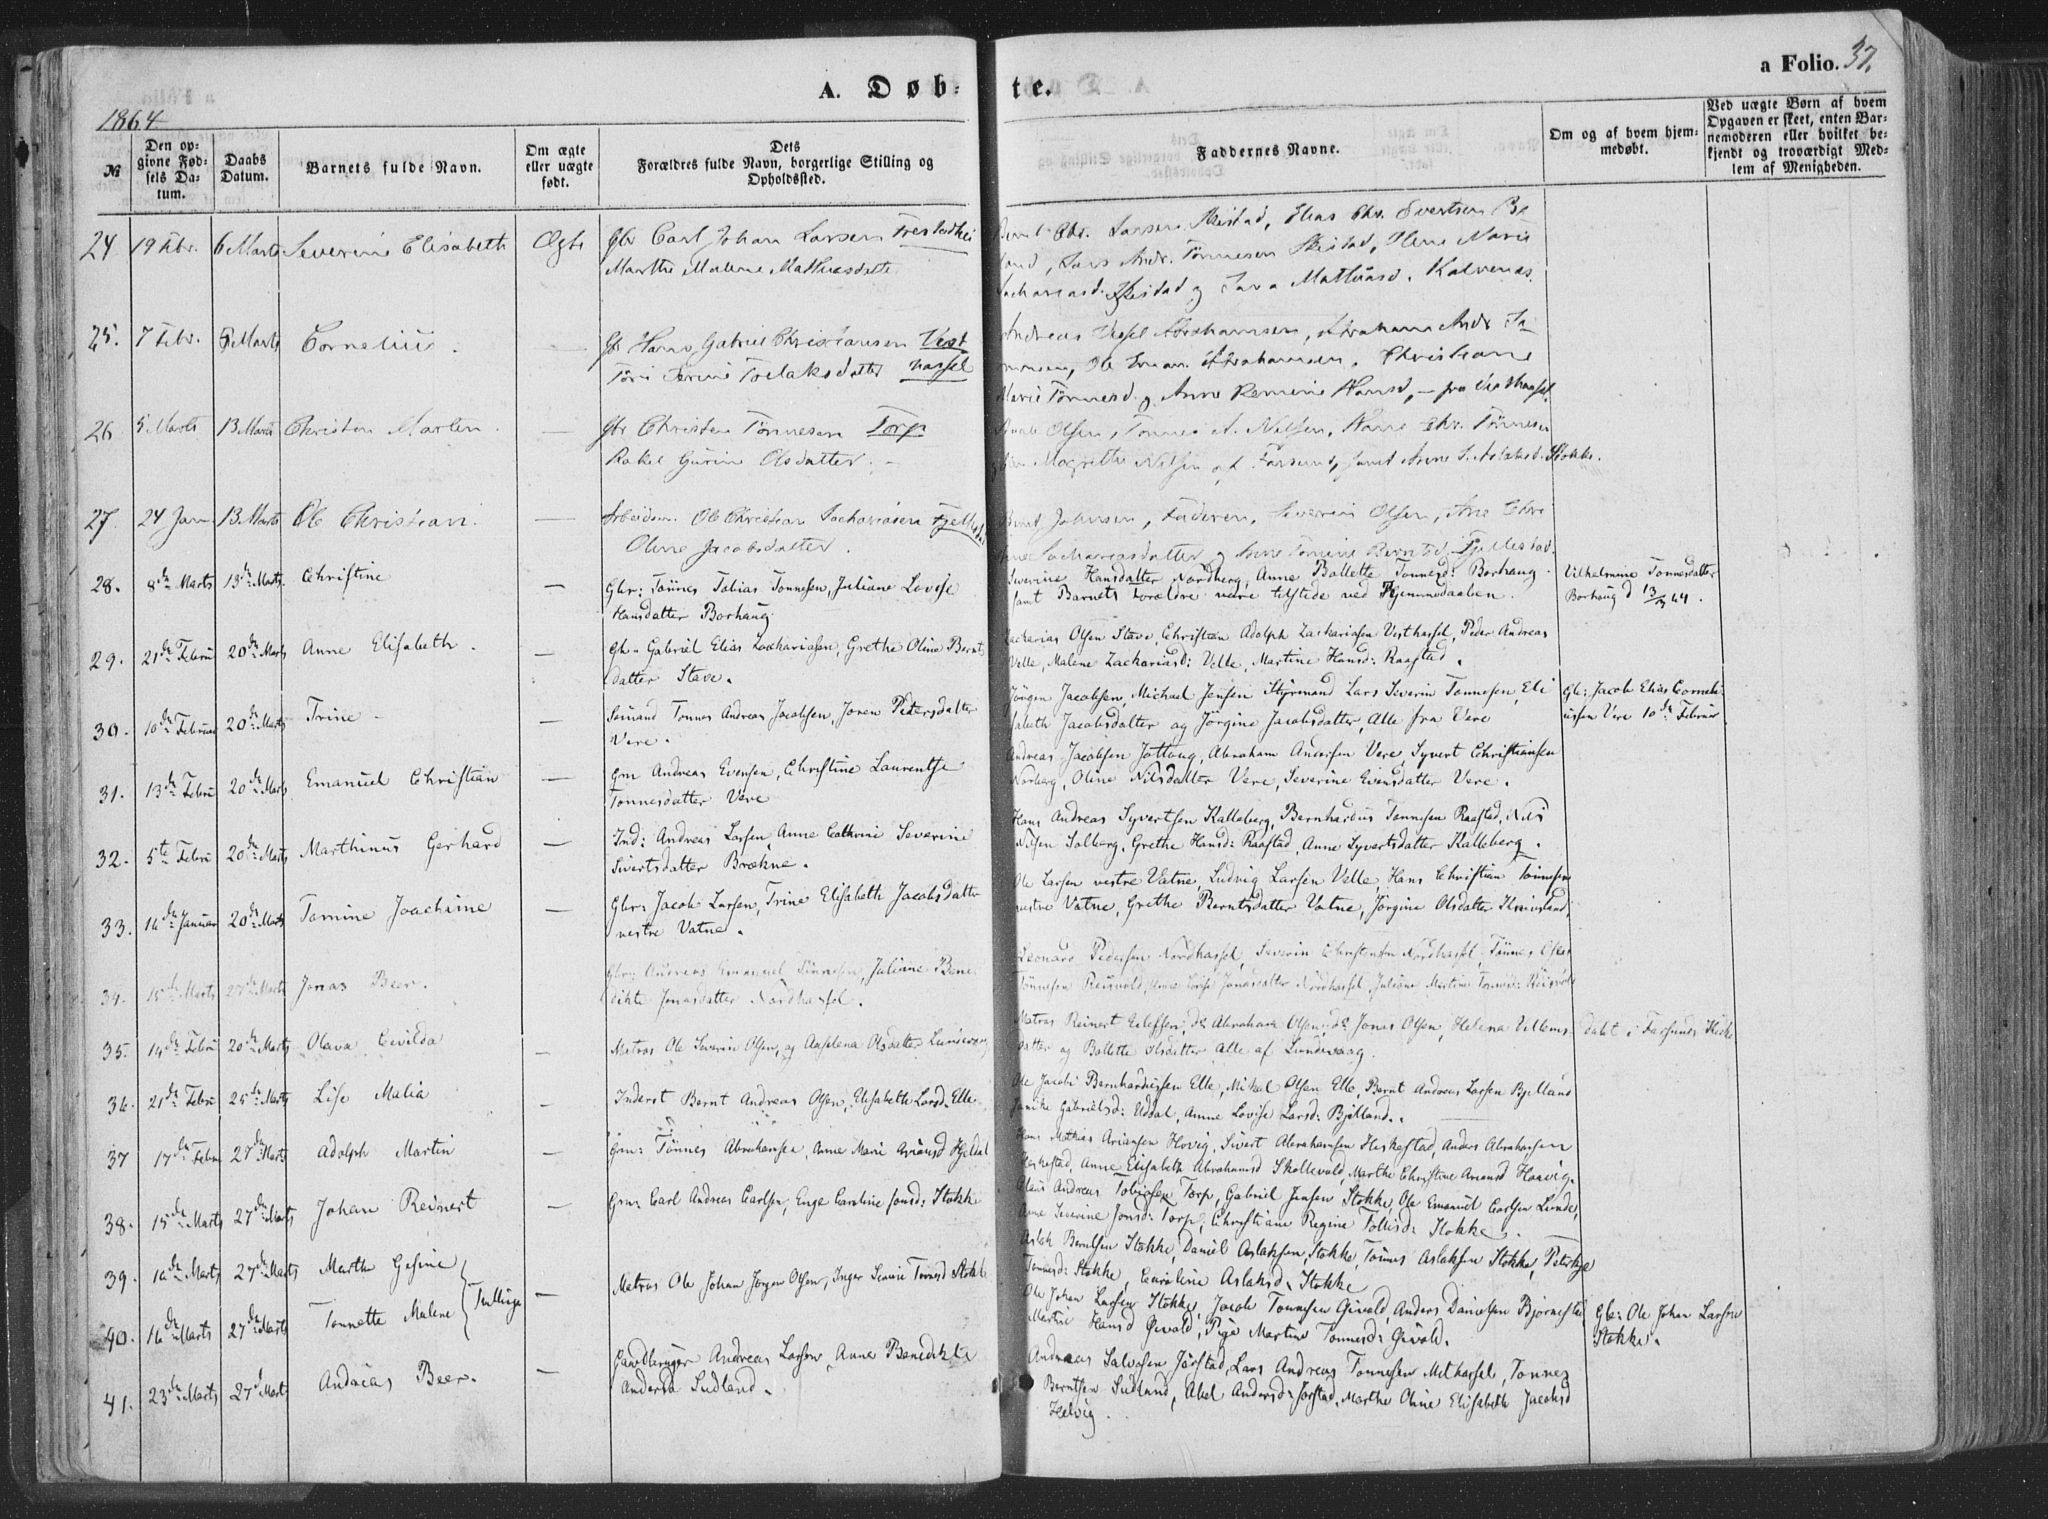 a Folio. 37.
A. Døb-te.
1864
№
Den opgivne Fødsels Datum.
Daabs Datum.
Barnets fulde Navn.
Om ægte eller uægte født.
Dets Forældres fulde Navn, borgerlige Stilling og Opholdssted.
Faddernes Navne.
Om og af hvem hjemmedøbt.
Ved uægte Børn af hvem Opgaven er skeet, enten Barnemoderen eller hvilket bekjendt og troværdigt Medlem af Menigheden.
24 19 Febr. 6 Marts Severine Elisabeth Ægte Gbr Carl Johan Larsen
Marthe Malene Mathiasdatte
Chr. Larsen Skistad, Elias Chr. Evertsen
Lars Andr. Tønnesen Skistad, Oline Marie
Sachariasd. Skistad og Sara Mathiasd. Kalvenes
25. 7 Febr. 6 Marts Cornelius. — Gbr Hans Gabriel Christiansen Vest
Serine Torlaksdatter hassel
Andreas Abrahamsen, Abraham Andr
Ole Eman. Abrahamsen, Christiane
Marie Tønnesd. og Anne Hansd, — fra Vesthassel.
26 5 Marts 13 Marts Christen Martin. — Gbr Christen Tønnesen Torp
Rakel Gurine Olsdatter. —
Olsen, Tønnes A. Nilsen, Hans Chr. Tønnesen
Magrethe Nilsen af Farsund, samt Anne S. Aslaksd. Stokke.
27. 24 Jan 13 Marts Ole Christian. — Arbeidsm. Ole Christian Sachariasen
Oline Jacobsdatter.
Bernt Johnsen, Faderen, Severin Olsen, Ane Chr
Sachariasdatter og Anne Tomine Berntsd. Fjellestad.
28. 8de Marts 13de Marts Christine — Gbr: Tönnes Tobias Tonnesen, Juliane Lovise
Hansdatter Borhaug.
Severine Hansdatter Nordberg, Anne Bollette Tonnesd: Borhaug.
samt Barnets Forældre vare tilstede ved Hjemmedaaben.
Vilhelmine Tonnesdatter
Borhaug d 13/3 64.
29. 21de Febru 20de Marts Anne Elisabeth. — Gbr Gabriel Elias Zachariasen, Grethe Oline Bernts
datter Stave.
Zacharias Olsen Stave, Christian Adolph Zachariasen Vesthassel, Peder Andreas
Velle, Malene Zachariasd: Velle, Martine Hansd: Raastad.
30. 10de Februar 20de Marts Trine — Sømand Tonnes Andreas Jacobsen, Joren Pedersdatter
Vere.
Jörgen Jacobsen, Michael Jensen Styrmand Lars Severin Tonnesen, Eli
sabeth Jacobsdatter og Jörgine Jacobsdatter, Alle fra Vere
Gbr: Jacob Elias Corneli
ussen Vere 10de Februar
31. 13de Febru 20de Marts Emanuel Christian — Grm Andreas Evensen, Christine Laurentse
Tonnesdatter Vere
Andreas Jacobsen Jottaug, Abraham Andersen Vere, Syvert Christiansen
Norberg, Oline Nilsdatter Vere, Severine Evensdatter Vere.
32. 5te Febru 20de Marts Marthinus Gerhard — Ind: Andreas Larsen, Anne Cathrine Severine
Sivertsdatter Brækne.
Hans Andreas Syvertsen Kalleberg, Bernhardus Tonnesen Raastad, Nils
Nilsen Solberg, Grethe Hansd: Raastad, Anne Syvertsdatter Kalleberg.
33. 14de Januar 20de Marts Tomine Joachime — Gbr: Jacob Larsen, Trine Elisabeth Jacobsdatter
vestre Vatne.
Ole Larsen vestre Vatne, Ludvig Larsen Velle, Hans Christian Tönnesen
vestre Vatne, Grethe Berntsdatter Vatne, Jörgine Olsdatter
34. 15de Marts 27de Marts Jonas Beer. Gbr: Andreas Emanuel Tönnesen, Juliane Bene
dikte Jonasdatter Nordhassel.
Leonard Pedersen Nordhassel, Severin Christensen Nordhassel, Tönnes
Tönnesen Jonasdatter Nordhassel, Juliane Martine Tonnesd:
35. 14de Febru 20de Marts Olava Civilda — Matros Ole Severin Olsen, og Anselena Olsdatter Lundevaag
Matros Reinert Eileffsen, do Abraham Olsen, do Jonas Olsen, Helena Villums
datter og Bollette Olsdatter, Alle af Lundevaag.
døbt i Farsunds Kirke
36. 21de Febru 25de Marts Lise Malia — Inderst Bernt Andreas Olsen, Elisabeth Larsd. Elle
Ole Jacob Bernhardussen Elle, Mikal Olsen Elle, Bernt Andreas Larsen Bjelland
Janike Gabrielsd: Uddal, Anne Lovise Larsd: Bjelland.
37 17de Febru 27de Marts Adolph Martin — Grm: Tönnes Abrahamsen, Anne Marie Ariansd
Hans Mathias Ariansen Hovig, Sivert Abrahamsen Heskestad, Anders Abrahamsen
Heskestad, Anne Elisabeth Abrahamsd Skollevold, Marthe Christine Ariansd Haavig.
38. 15de Marts 27de Marts Johan Reinert — Grm: Carl Andreas Carlsen, Enge Caroline Jonsd: Stokke
Claus Andreas Tobiasen Torp, Gabriel Jensen Stokke, Ole Emanuel Carlsen Lunde,
Anne Severine Jonsd: Torp, Christiane Regine Tollisd: Stokke.
39. 16de Marts 27de Marts Marthe Gesine
40. 16de Marts 27de Marts Tonnette Malene } Tvillinge — Matros Ole Johan Jørgen Olsen, Inger Tonnesd Stokke
Aslak Berntsen Stokke, Daniel Aslaksen Stokke, Tonnes Aslaksen Stokke,
Tonnesd: Stokke, Caroline Aslaksd: Stokke
Ole Johan Larsen Stokke, Jacob Tonnesen Givold, Anders Danielsen Bjornestad
Martin Hansd Givold, Pige Martine Tonnesd: Givold.
Gbr: Ole Johan Larsen
Stokke.
41. 23de Marts 27d Marts Andreas Beer. — Gaardbruger Andreas Larsen, Anne Benedikte
Andersd: Sudland.
Andreas Salvesen Jörstad, Lars Andreas Tonnesen Mithassel, Tonnes
Berntsen Sudland, Abel Andersd: Jorstad, Marthe Oline Elisabeth Jacobsd
Helvig.